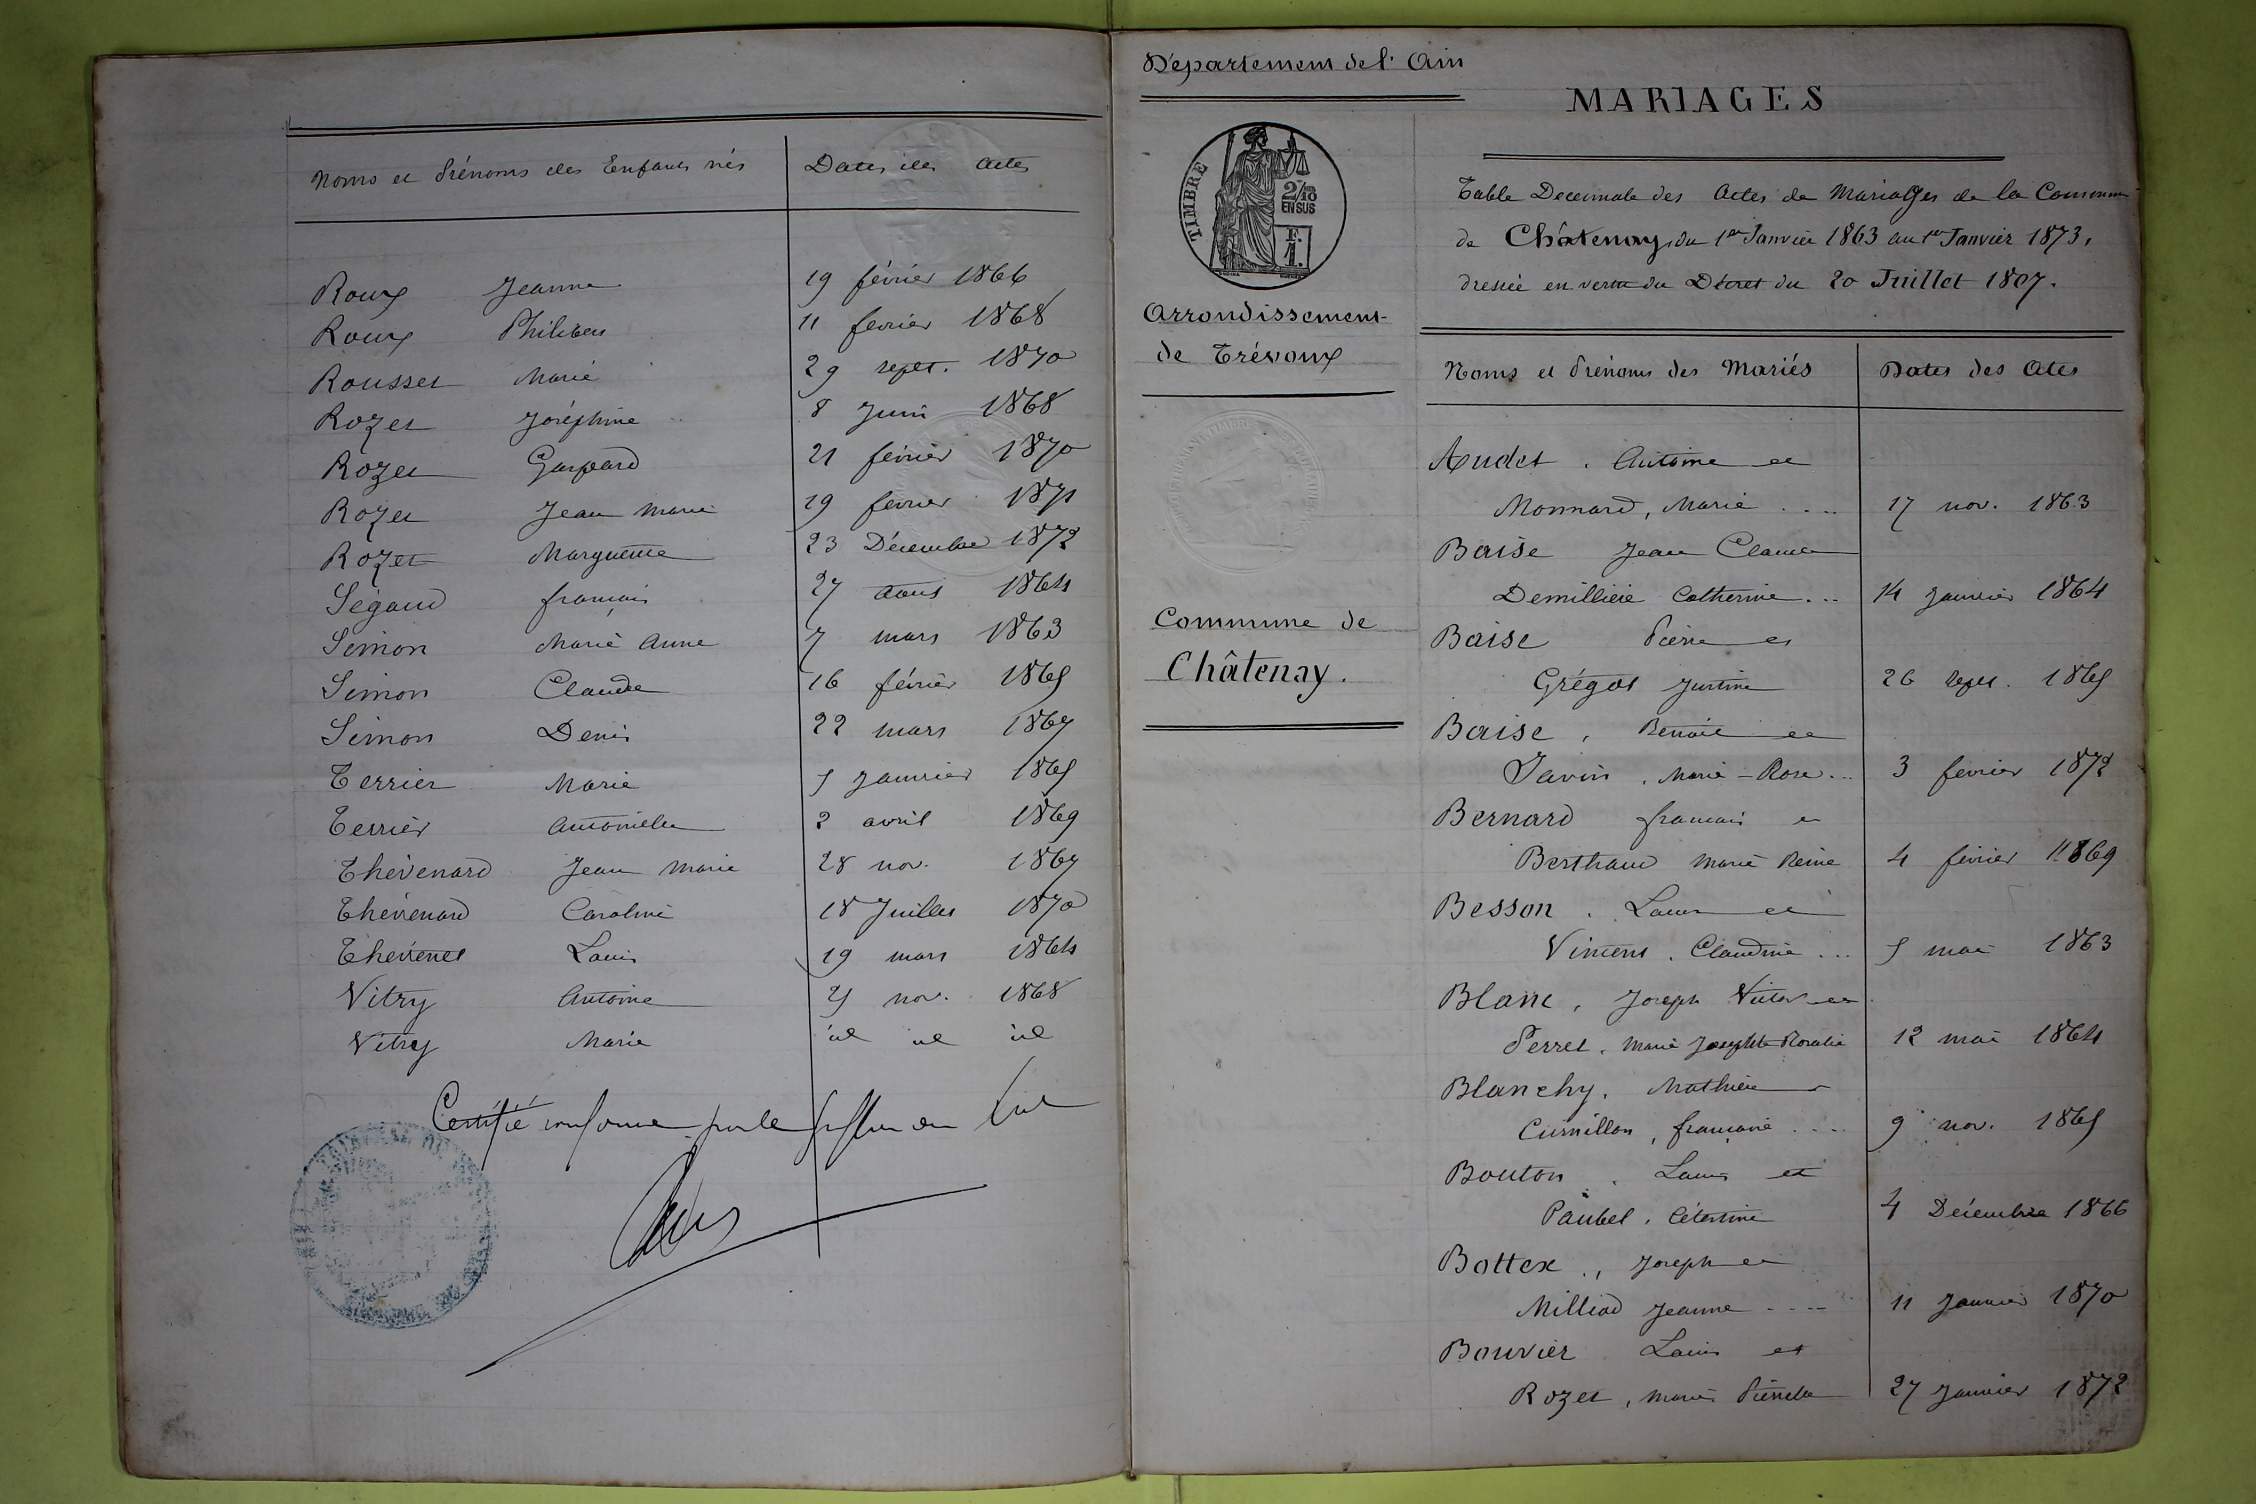 Noms et Prénoms des Enfants nés Dates des Actes
Roux Jeanne 19 février 1866
Roux Philibert 11 février 1868
Rousset Marie 29 sept. 1870
Rozet Joséphine 8 Juin 1868
Rozet Gaspard 21 février 1870
Rozet Jean Marie 19 février 1871
Rozet Marguerite 23 Décembre 1872
Ségaud françois 27 Aout 1864
Simon Marie Anne 7 mars 1863
Simon Claude 16 février 1865
Simon Denis 22 mars 1867
Terrier Marie 5 Janvier 1865
Terrier Antoinette 2 avril 1869
Thévenard Jean Marie 28 nov. 1867
Thévenard Caroline 18 Juillet 1870
Thévenet Louis 19 mars 1864
Vitry Antoine 25 nov. 1868
Vitry Marie id id id
Certifié conforme par le
Département de l'Ain
MARIAGES
TIMBRE
2/10
EN SUS
F.
1.
Table Décennale des Actes de Mariages de la Commune
de Châtenay, du 1er Janvier 1863 au 1er Janvier 1873,
dressée en vertu du Décret du 20 Juillet 1807.
Arrondissement
de Trévoux
Commune de
Châtenay.
Noms et Prénoms des Mariés Dates des Actes
Audet, Antoine et
Monnard, Marie .... 17 nov. 1863
Baise Jean Claude
Demillière Catherine ... 14 Janvier 1864
Baise Pierre et
Grégot Justine 26 sept. 1865
Baise, Benoit et
Javin, Marie-Rose ... 3 février 1872
Bernard françois et
Berthaud Marie Reine 4 février 1869
Besson, Louis et
Vincent, Claudine ... 5 mai 1863
Blanc, Joseph Victor et
Perret, Marie Josephte Rosalie 12 mai 1864
Blanchy, Mathieu et
Curnillon, françoise .... 9 nov. 1865
Bouton, Louis et
Paubel, Célestine 4 Décembre 1866
Bottex, Joseph et
Milliad Jeanne .... 11 Janvier 1870
Bouvier Louis et
Rozet, Marie Pierrette 27 Janvier 1872